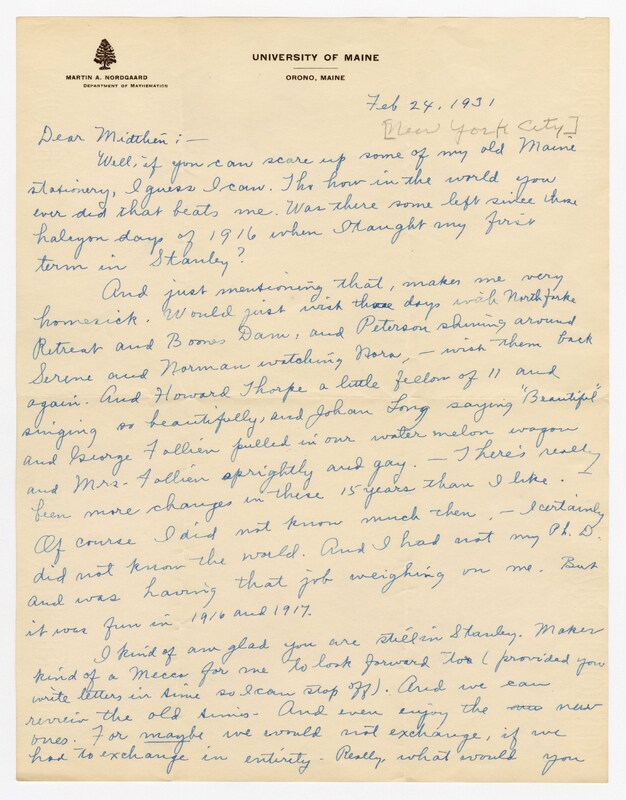 UNIVERSITY OF MAINE
ORONO, MAINE
MARTIN A. NORDGAARD
DEPARTMENT OF MATHEMATICS
Feb 24, 1931
[New York City]
Dear Midthen; —
Well, if you can scare up some of my old Maine
stationery, I guess I can. Tho how in the world you
ever did that beats me. Was there some left since those
halcyon days of 1916 when I taught my first
term in Stanley?
And just mentioning that, makes me very
homesick. Would just wish those days with North Forke
Retreat and Boones Dam, and Peterson shining around
Serene and Norman watching Nora, — wish them back
again. And Howard Thorpe a little fellow of 11 and
singing so beautifully, and Johan Long saying "Beautiful"
and George Follien pulled in our water melon wagon
and Mrs. Follien sprightly and gay. — There's really
been more changes in these 15 years than I like. —
Of course I did not know much then, — I certainly
did not know the world. And I had not my Ph. D.
and was having that job weighing on me. But
it was fun in 1916 and 1917.
I kind of am glad you are still in Stanley. Makes
kind of a Mecca for me to look forward too (provided you
write letters in time so I can stop off). And we can
review the old times. And even enjoy the new
ones. For maybe we would not exchange, if we
had to exchange in entirety. Really, what would you